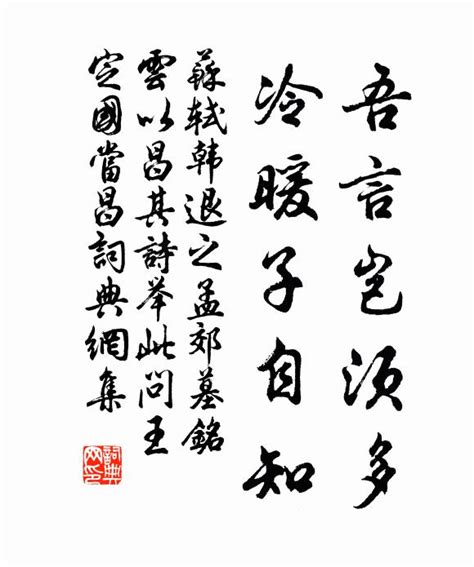 吾言岂須多
冷暖子自知
蘇軾韓退之孟郊墓銘
雲以昌其詩举此問王
定國當昌詞典網集
詞典
网印